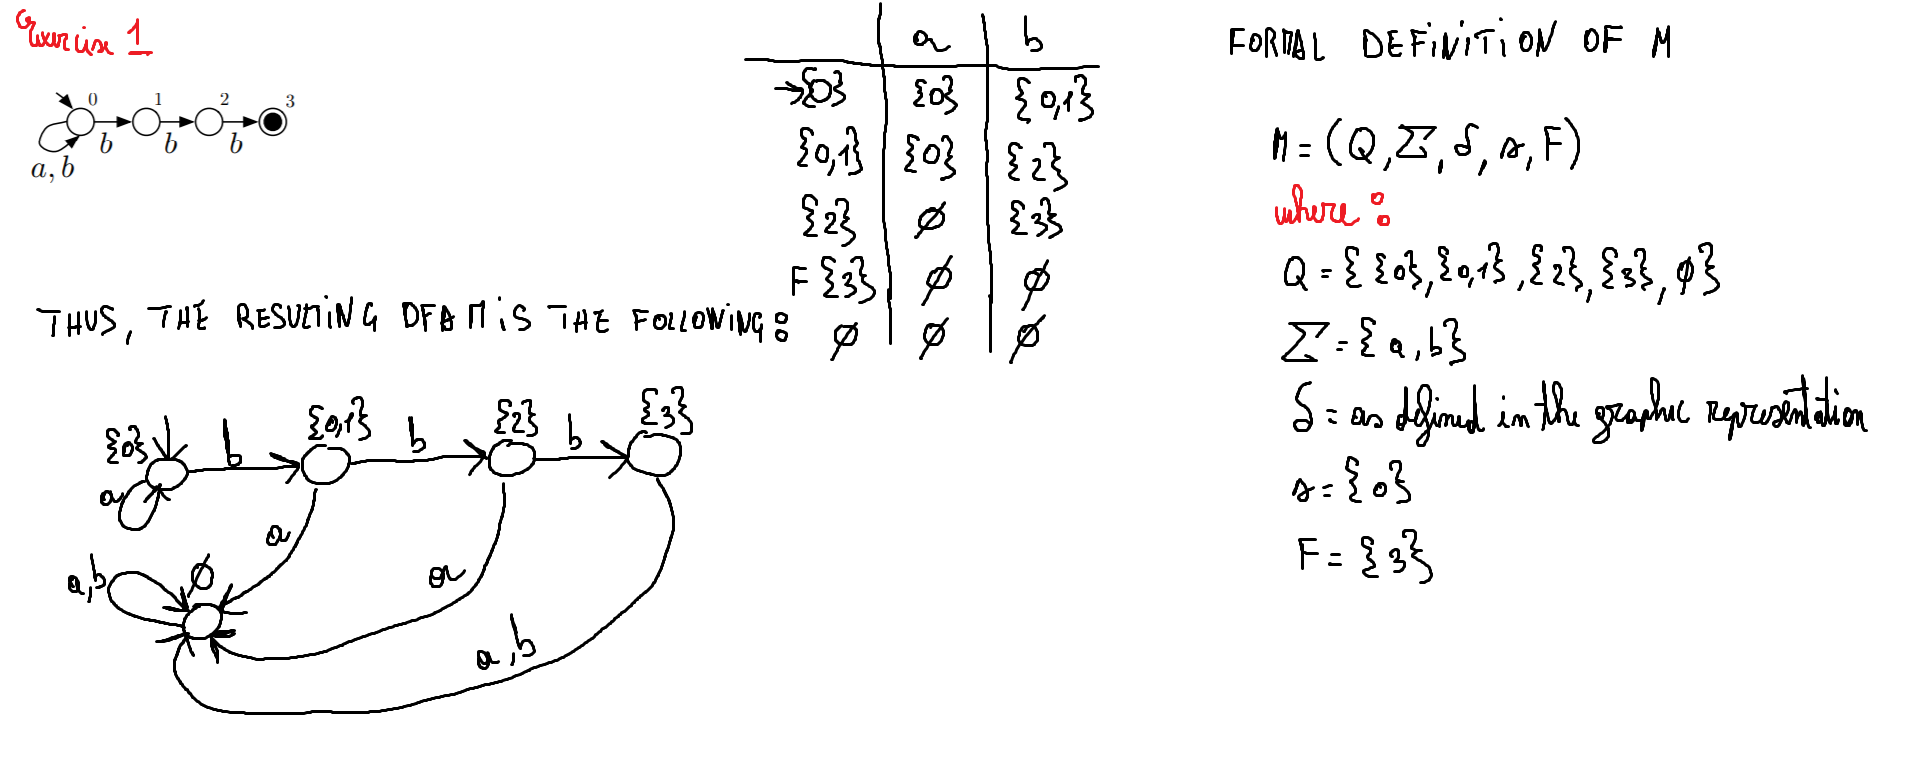 Exercise 1
0 1 2 3
b b b
a, b
a b
→{0} {0} {0,1}
{0,1} {0} {2}
{2} ∅ {3}
F {3} ∅ ∅
∅ ∅ ∅
THUS, THE RESULTING DFA M iS THE FOLLOWiNG:
{0} b {0,1} b {2} b {3}
a
a a
a,b ∅
a,b
FORMAL DEFiNiTiON OF M
M = (Q, Σ, δ, s, F)
where:
Q = { {0}, {0,1}, {2}, {3}, ∅}
Σ = { a, b}
δ = as defined in the graphic representation
s = {0}
F = {3}